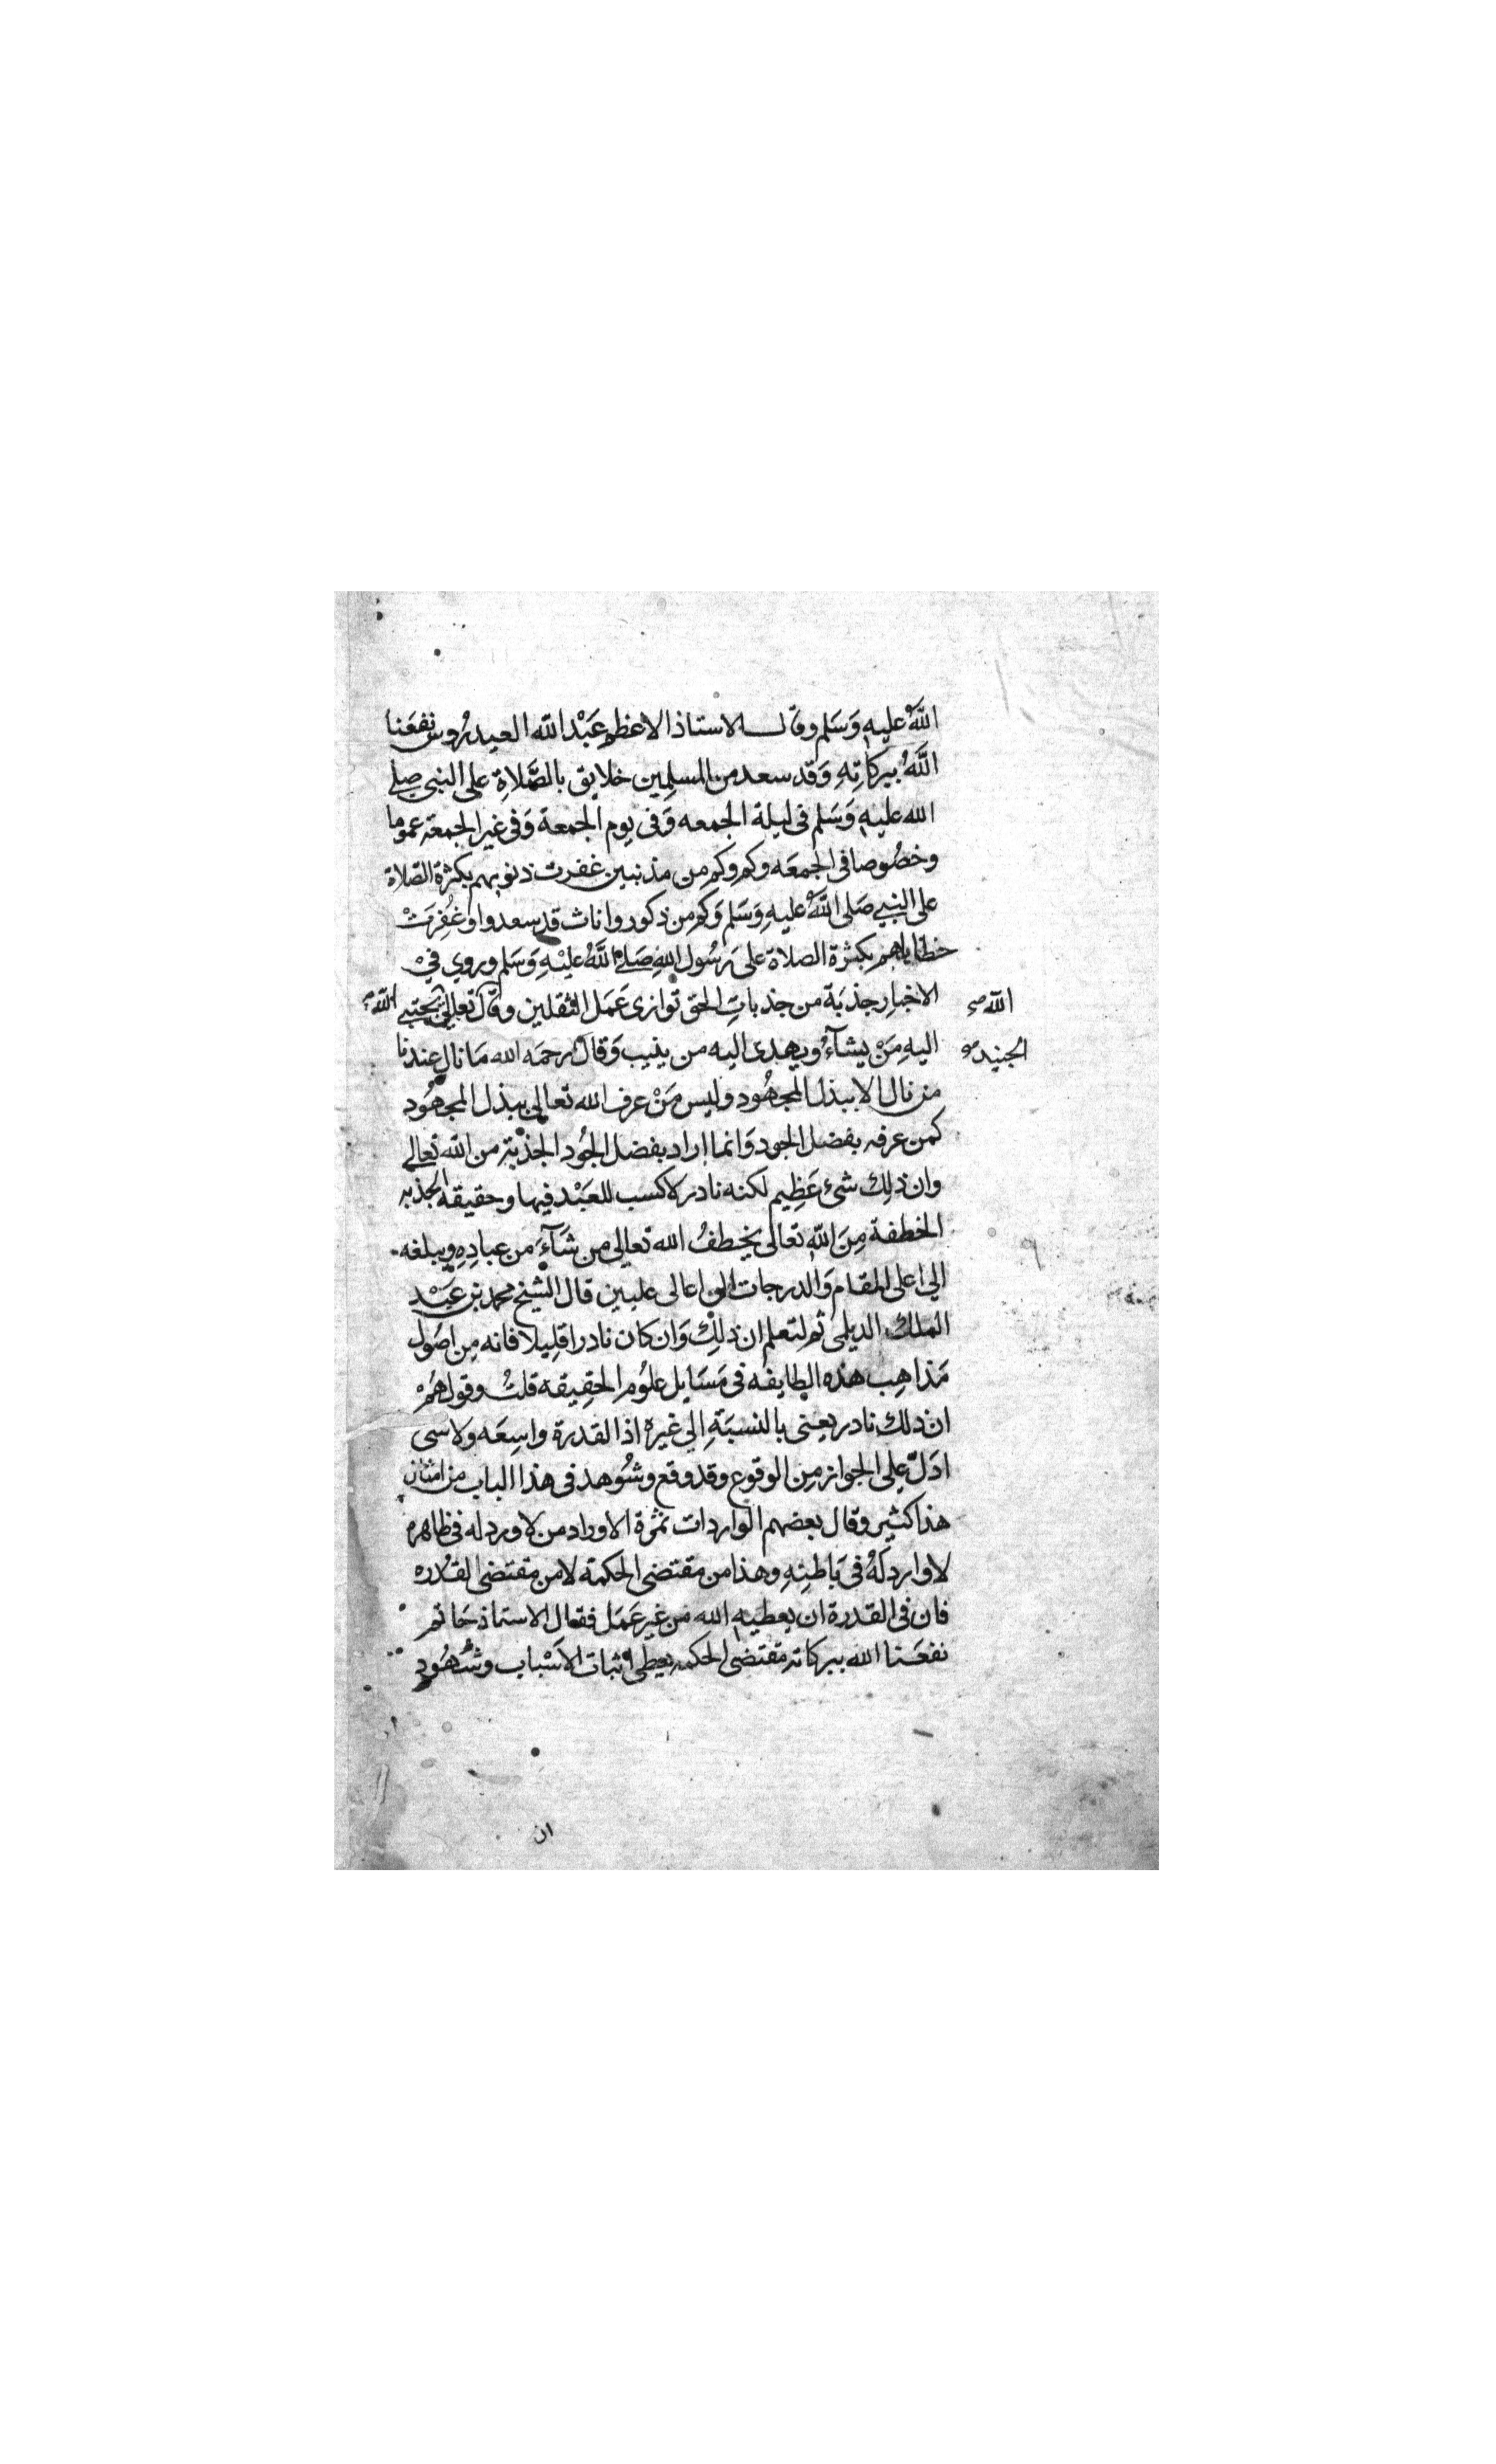 اللَّهُ عليهِ وَسَلم وقال الاستاذ الاعظم عَبْد الله العيدرُوس نفعَنا
اللَّهُ ببركاتِهِ وَقد سعد من المسلمين خلايق بالصَّلاةِ على النبي صلى
الله عليهِ وَسَلم في ليلة الجمعه وَفي يوم الجمعة وَفي غير الجمعة عموما
وخصُوصا في الجمعَه وكم وكم من مذنبين غفرت ذنوبهم بكثرة الصّلاة
على النبي صَلى اللَّهُ عليهِ وَسَلم وَكم من ذكور واناث قد سعدوا وغُفِرَتْ
خطاياهم بكثرة الصلاة على رسُول اللهِ صَلى اللَّهُ عليْهِ وَسَلم وروي في
الاخبارِ جذبَة من جذباتِ الحق توازى عَمَل الثقلين وقال تعالى يجتبى الله
الله
اليهِ مَنْ يشآءُ ويهدى اليه من ينيب وَقال رحمَه الله مَا نال عندنا
الجنيد
من نال الا ببذل المجهُود وليس مَنْ عرف الله تعالى ببذل المجهُود
كمن عرفه بفضل الجود وَانما اراد بفضل الجُود الجذبة من الله تعالى
وان ذلِك شىء عَظِيم لكنه نادر لا كسب للعَبْد فيها وحقيقة الجذبه
الخطفة مِنَ اللهِ تعالى يخطفُ الله تعالى من شَآءَ من عبادِهِ ويبلغه
الي اعلى المقام وَالدرجات الى اعالى عليين قال الشيخ محمد بن عَبْد
الملك الديلمى ثم لتعلم ان ذلِك وَان كان نادرا قلِيلا فانه مِن اصُول
مَذاهِب هذه الطايفه في مَسَايل علوُم الحقِيقه قلتُ وقولهُمْ
ان ذلك نادر يعني بالنسبَةِ الي غيرِه اذ القدرة واسِعَه ولا شى
ادَلّ على الجواز مِن الوقوع وقد وقع وشُوهد في هذا الباب من امثال
هذا كثير وقال بعضهم الواردات ثمرة الاوراد من لا ورد له في ظاهره
لا وارد لَهُ في بَاطنِهِ وهذا من مقتضى الحكمة لا من مقتضى القدره
فان في القدرة ان يعطيهِ الله من غير عَمَل فقال الاستاذ حَاتم
نفعَنا الله ببركاته مقتضى الحكمه يعطي اثبات الاَسْباب وشُهُود
ان